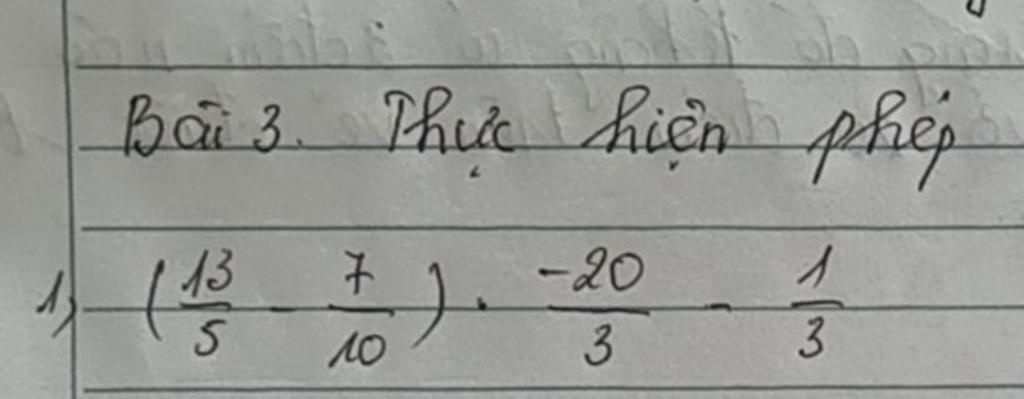 Bài 3. Thực hiện phép
1) (13/5 - 7/10) . -20/3 - 1/3